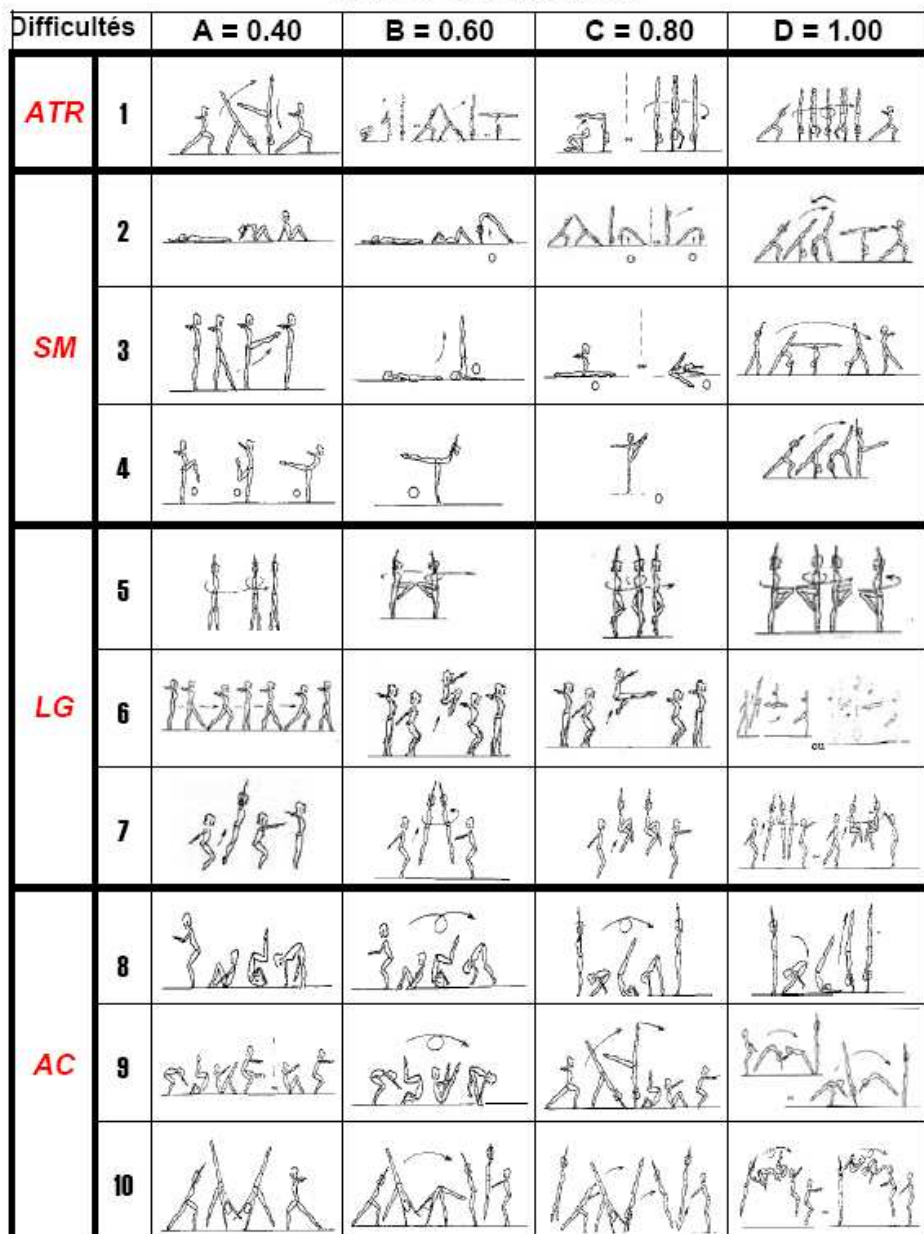 Difficultés A = 0.40 B = 0.60 C = 0.80 D = 1.00
ATR 1
2
SM 3
4
5
LG 6
ou
7
8
AC 9
10